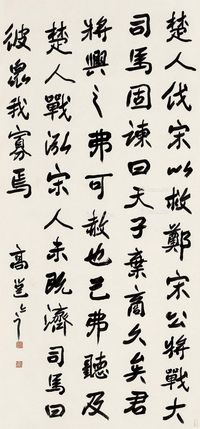 楚人伐宋以救鄭宋公將戰大
司馬固諫曰天子棄商久矣君
將興之弗可赦也已弗聽及
楚人戰泓宋人未既濟司馬曰
彼眾我寡焉
高邕